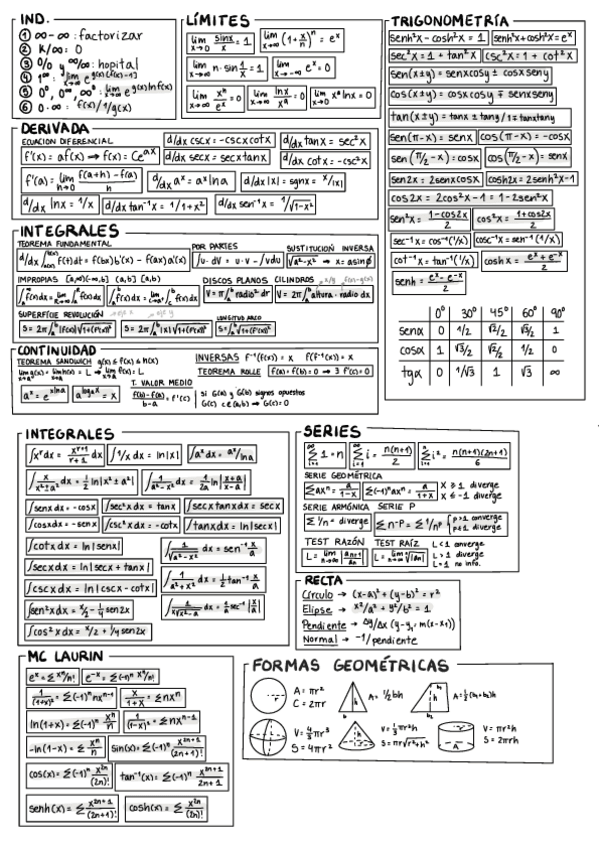 IND.
① ∞-∞ : factorizar
② K/∞ = 0
③ 0/0 y ∞/∞ : hopital
④ 1^∞ : lim x→∞ e^g(x)(f(x)-1)
⑤ 0⁰, 0^∞, ∞⁰ : lim x→∞ e^g(x)ln f(x)
⑥ 0·∞ : f(x)/1/g(x)
LÍMITES
lim x→0 senx/x = 1
lim x→∞ (1+x/n)^n = e^x
lim x→∞ n·sen 1/x = 1
lim x→-∞ e^x = 0
lim x→∞ x^n/e^x = 0
lim x→∞ lnx/x^a = 0
lim x→0 x^a lnx = 0
TRIGONOMETRÍA
senh²x - cosh²x = 1
senh²x + cosh²x = e^x
sec²x = 1 + tan²x
csc²x = 1 + cot²x
sen(x±y) = senxcosy ± cosxseny
cos(x±y) = cosxcosy ∓ senxseny
tan(x±y) = tanx ± tany / 1 ∓ tanxtany
sen(π-x) = senx
cos(π-x) = -cosx
sen(π/2-x) = cosx
cos(π/2-x) = senx
sen2x = 2senxcosx
cosh2x = 2senh²x-1
cos2x = 2cos²x-1 = 1-2sen²x
sen²x = 1-cos2x/2
cos²x = 1+cos2x/2
sec⁻¹x = cos⁻¹(1/x)
cosc⁻¹x = sen⁻¹(1/x)
cot⁻¹x = tan⁻¹(1/x)
coshx = e^x+e^-x/2
senh = e^x-e^-x/2
0° 30° 45° 60° 90°
senα 0 1/2 √2/2 √3/2 1
cosα 1 √3/2 √2/2 1/2 0
tgα 0 1/√3 1 √3 ∞
DERIVADA
ECUACION DIFERENCIAL
f'(x) = af(x) → f(x) = Ce^ax
d/dx cscx = -cscxcotx
d/dx tanx = sec²x
d/dx secx = secxtanx
d/dx cotx = -csc²x
f'(a) = lim h→0 f(a+h)-f(a)/h
d/dx a^x = a^x lna
d/dx |x| = sgnx = x/|x|
d/dx lnx = 1/x
d/dx tan⁻¹x = 1/1+x²
d/dx sen⁻¹x = 1/√1-x²
INTEGRALES
TEOREMA FUNDAMENTAL
POR PARTES
∫u·dV = u·V - ∫vdu
SUSTITUCIÓN INVERSA
√a²-x² → x = asinϕ
IMPROPIAS [a,∞)(-∞,b] (a,b] [a,b)
DISCOS PLANOS
V = π∫radio² dr
CILINDROS
V = 2π∫altura·radio dx
SUPERFÍCIE REVOLUCIÓN
LONGITUD ARCO
CONTINUIDAD
TEOREMA SANDWICH g(x) ≤ f(x) ≤ h(x)
INVERSAS f⁻¹(f(x)) = x f(f⁻¹(x)) = x
TEOREMA ROLLE f(a) = f(b) = 0 → ∃ f'(c) = 0
a^x = e^xlna
a^logax = x
T. VALOR MEDIO
f(b)-f(a)/b-a = f'(c)
si G(a) y G(b) signos opuestos
G(c) c∈(a,b) → G(c) = 0
INTEGRALES
∫x^r dx = x^r+1/r+1 dx
∫1/x dx = ln|x|
∫a^x dx = a^x/lna
∫x/x²±a² dx = 1/2 ln|x²±a²|
∫1/a²-x² dx = 1/2a ln|x+a/x-a|
∫senxdx = -cosx
∫sec²xdx = tanx
∫secxtanxdx = secx
∫cosxdx = -senx
∫csc²xdx = -cotx
∫tanxdx = ln|secx|
∫cotxdx = ln|senx|
∫1/√a²-x² dx = sen⁻¹ x/a
∫secxdx = ln|secx + tanx|
∫1/a²+x² dx = 1/a tan⁻¹ x/a
∫cscxdx = ln|cscx - cotx|
∫sen²xdx = x/2 - 1/4 sen2x
∫cos²xdx = x/2 + 1/4 sen2x
SERIES
Σ1 = n
Σi = n(n+1)/2
Σi² = n(n+1)(2n+1)/6
SERIE GEOMÉTRICA
Σax^n = a/1-x
Σ(-1)^n ax^n = a/1+x
x ≥ 1 diverge
x ≤ -1 diverge
SERIE ARMÓNICA
Σ1/n = diverge
SERIE P
Σn^-P = Σ1/n^P p>1 converge
p≤1 diverge
TEST RAZÓN
TEST RAÍZ
L<1 converge
L>1 diverge
L=1 no info.
RECTA
Círculo → (x-a)²+(y-b)² = r²
Elipse → x²/a² + y²/b² = 1
Pendiente → Δy/Δx (y-y₁ = m(x-x₁))
Normal → -1/pendiente
MC LAURIN
e^x = Σx^n/n!
e^-x = Σ(-1)^n x^n/n!
1/(1+x)² = Σ(-1)^n nx^n-1
x/1+x = Σnx^n
ln(1+x) = Σ(-1)^n x^n/n
1/(1-x)² = Σnx^n-1
-ln(1-x) = Σ x^n/n
sin(x) = Σ(-1)^n x^2n+1/(2n+1)!
cos(x) = Σ(-1)^n x^2n/(2n)!
tan⁻¹(x) = Σ(-1)^n x^2n+1/2n+1
senh(x) = Σ x^2n+1/(2n+1)!
cosh(x) = Σ x^2n/(2n)!
FORMAS GEOMÉTRICAS
r
A = πr²
C = 2πr
h
b
A = 1/2bh
V = 4/3πr³
S = 4πr²
V = 1/3πr²h
S = πr√r²+h²
A
V = πr²h
S = 2πrh